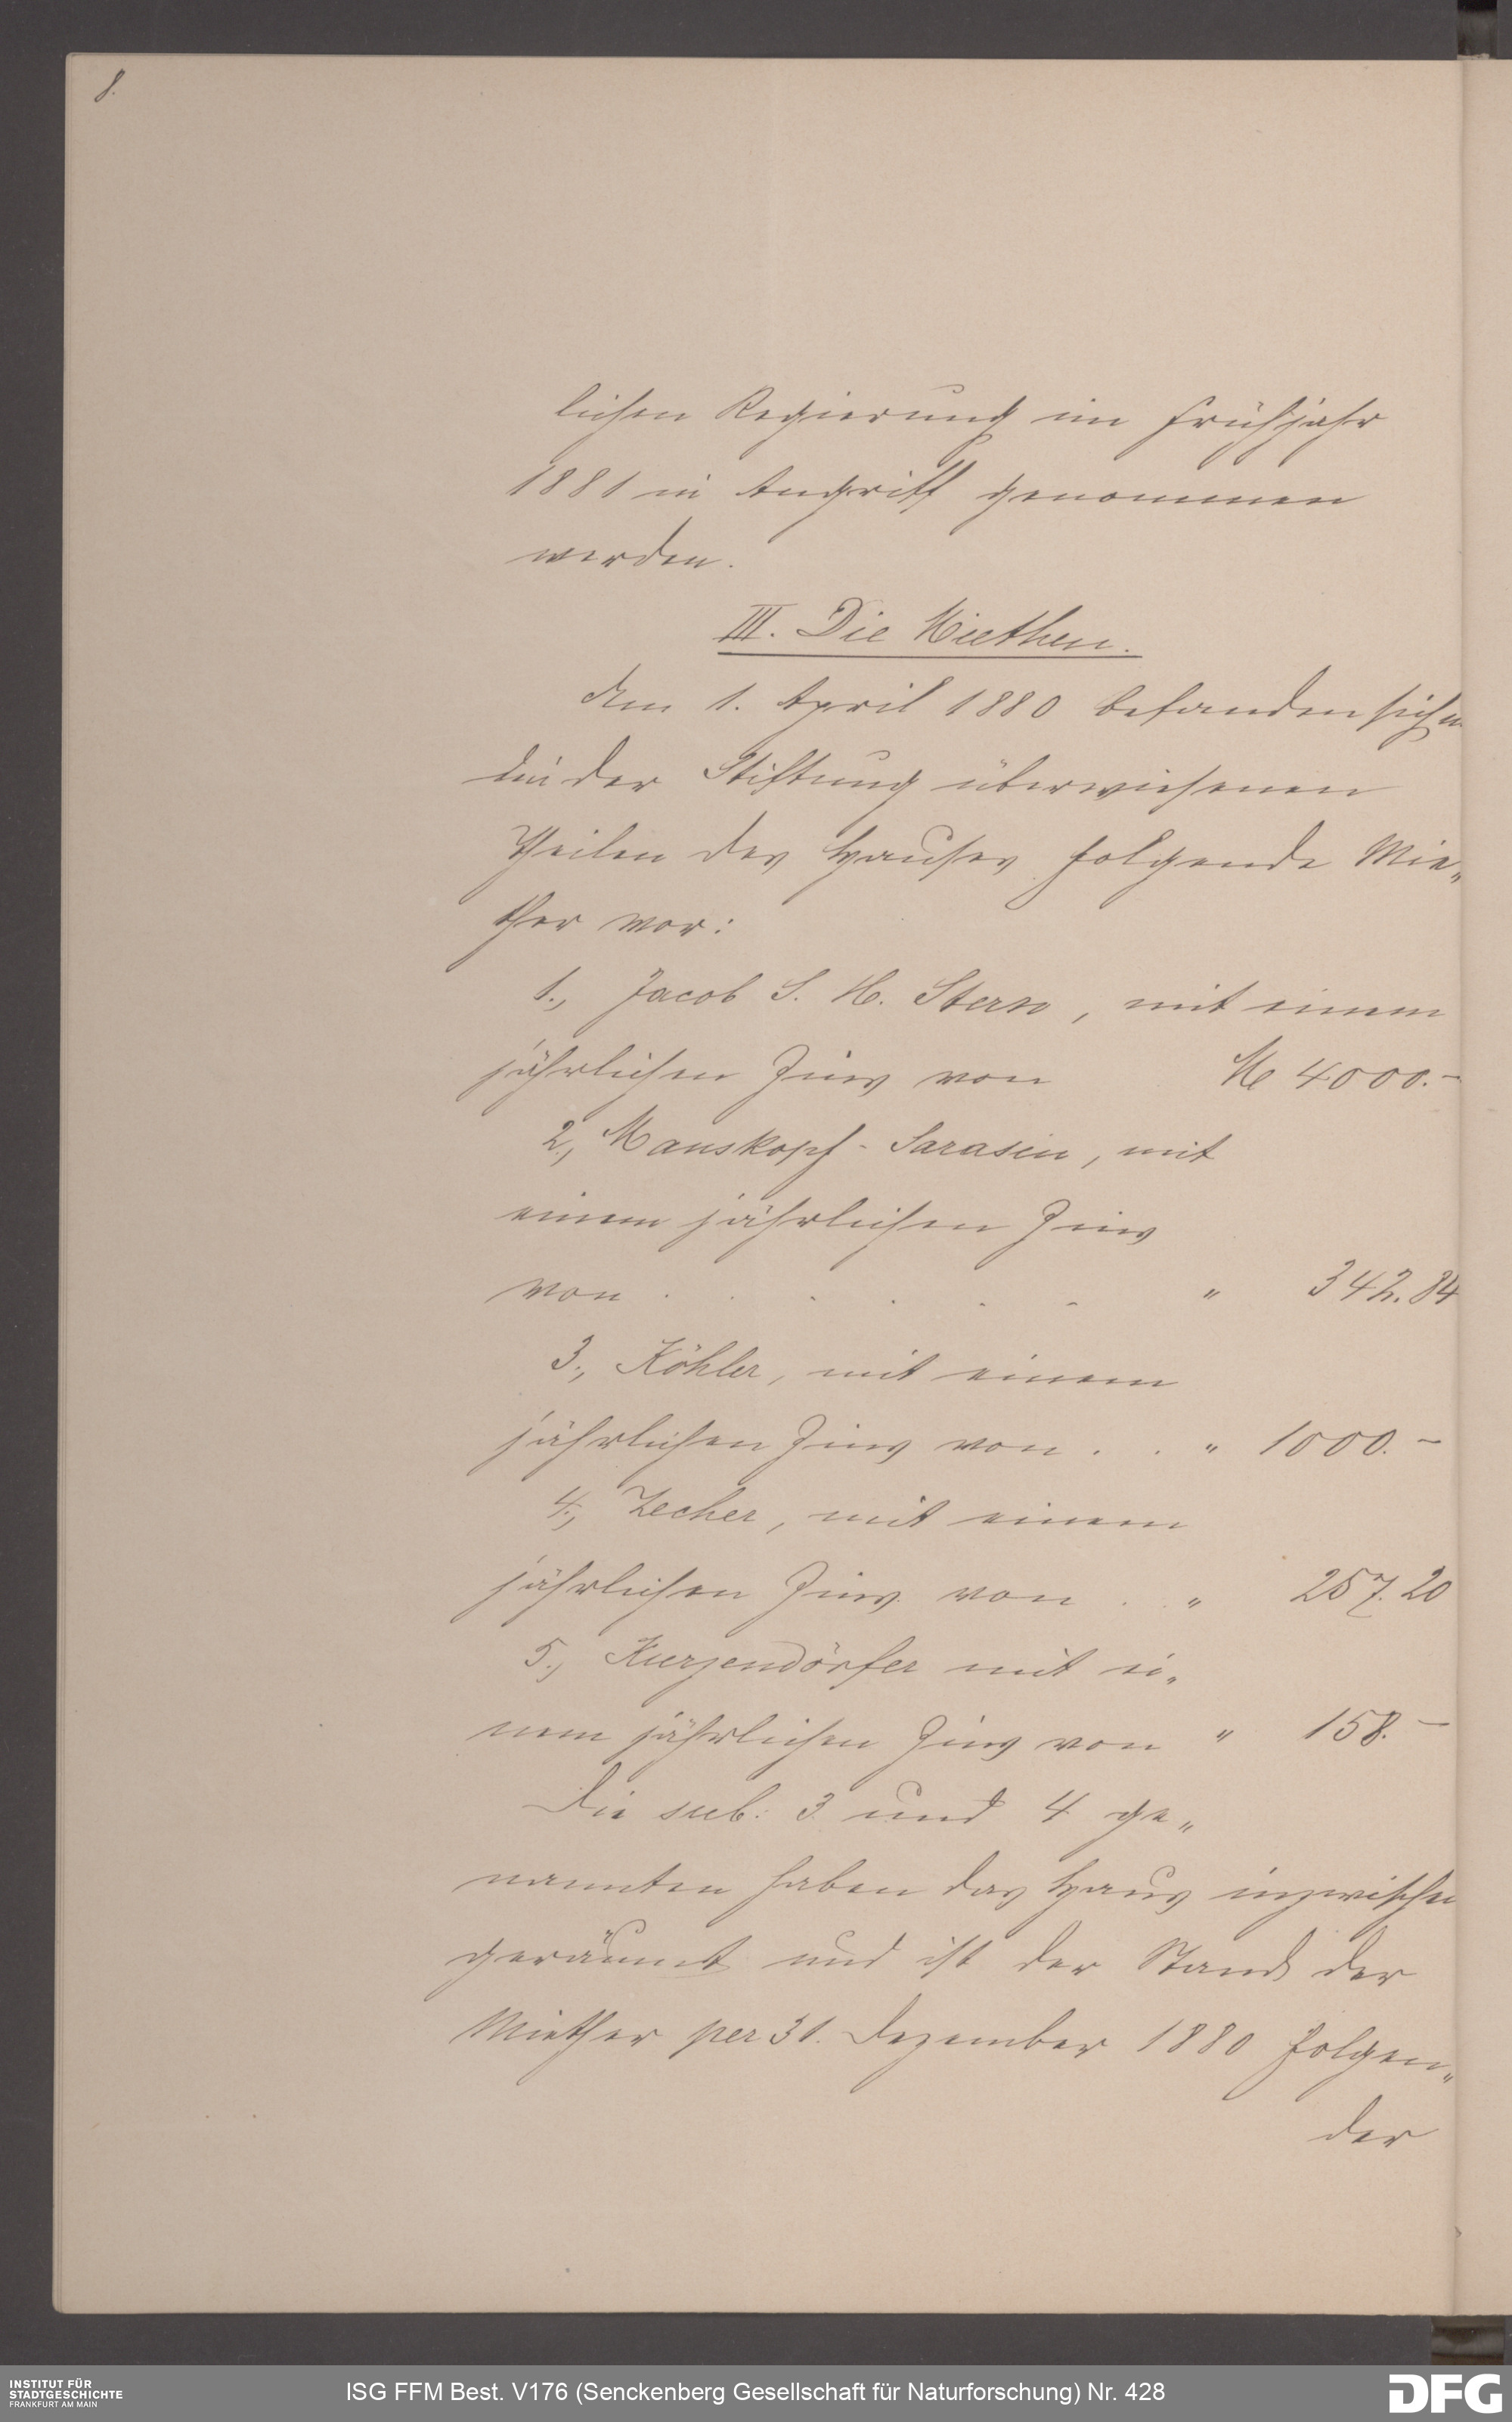 8.
lichen Regierung im Frühjahr
1881 in Angriff genommen
werden.
III. Die Miethen.
Am 1. April 1880 befanden sich in
den der Stiftung überwiesenen
Theilen des Hauses folgende Mie„
ther vor:
1., Jacob S. H. Stern, mit einem
jährlichen Zins von M 4000.–
2., Manskopf-Sarasin, mit
einem jährlichen Zins
von . . . . . . " 342.84
3., Köhler, mit einem
jährlichen Zins von . . " 1000.–
4., Zecher, mit einem
jährlichen Zins von . . " 257.20
5., Kurzendörfer mit ei„
nem jährlichen Zins von " 158.–
Die sub: 3 und 4 ge„
nannten haben das Haus inzwischen
geräumt und ist der Stand der
Miether per 31. Dezember 1880 folgen„
der
INSTITUT FÜR
STADTGESCHICHTE
FRANKFURT AM MAIN
ISG FFM Best. V176 (Senckenberg Gesellschaft für Naturforschung) Nr. 428
DFG